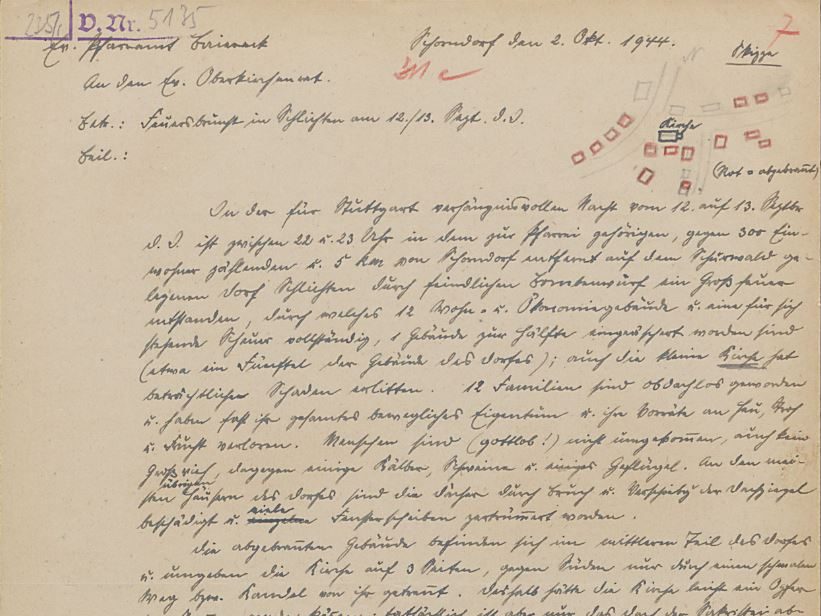 225/I D.Nr. 5135
7
Ev. Pfarramt Baiereck Schorndorf den 2. Okt. 1944.
Skizze
An den Ev. Oberkirchenrat.
N
Kirche
Betr.: Feuersbrunst in Schlichten am 12./13. Sept. d. J.
Beil.:
(Rot = abgebrannt)
In der für Stuttgart verhängnisvollen Nacht vom 12. auf 13. Septbr
d. J. ist zwischen 22 u. 23 Uhr in dem zur Pfarrei gehörigen, gegen 300 Ein-
wohner zählenden u. 5 km von Schorndorf entfernt auf dem Schurwald ge-
legenen Dorf Schlichten durch feindlichen Bombenwurf ein Großfeuer
entstanden, durch welches 12 Wohn- u. Ökonomiegebäude u. eine für sich
stehende Scheuer vollständig, 1 Gebäude zur Hälfte eingeäschert worden sind
(etwa ein Fünftel der Gebäude des Dorfes); auch die kleine Kirche hat
beträchtlichen Schaden erlitten. 12 Familien sind obdachlos geworden
u. haben fast ihr gesamtes bewegliches Eigentum u. ihre Vorräte an Heu, Stroh
u. Frucht verloren. Menschen sind (gottlob!) nicht umgekommen, auch kein
Großvieh, dagegen einige Kälber, Schweine u. einiges Geflügel. An den mei-
sten übrigen Häusern des Dorfes sind die Dächer durch Bruch u. Verschiebg der Dachziegel
beschädigt u. viele Fensterscheiben zertrümmert worden.
Die abgebrannten Gebäude befinden sich im mittleren Teil des Dorfes
u. umgeben die Kirche auf 3 Seiten, gegen Süden nur durch einen schmalen
Weg bzw. Kandel von ihr getrennt. Deshalb hätte die Kirche leicht ein Opfer
tatsächlich ist aber nur das Dach der Sakristei ab-